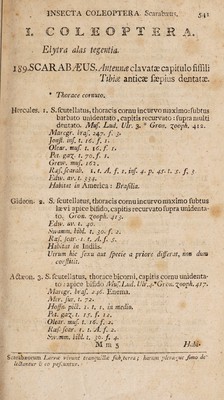 INSECTA COLEOPTERA. Scarabæus. 541
I. COLEOPTERA.
Elytra alas tegentia.
189. SCARABÆUS. Antennæ clavatæ capitulo fissili
Tibiæ anticæ sæpius dentatæ.
* Thorace cornuto.
Hercules. 1. S. scutellatus, thoracis cornu incurvo maximo: subtus
barbato unidentato, capitis recurvato: supra multi
dentato. Mus. Lud. Ulr. 3. * Gron. zooph. 412.
Marcgr. bras. 247. f. 3.
Jonst. ins. t. 16. f. 1.
Olear. mus. t. 16. f. 1.
Pet. gaz. t. 70. f. 1.
Grew. mus. 162.
Raj. scarab. t. 1. A. f. 1. inf. 4. p. 45. t. 5. f. 5
Edw. av. t. 334.
Habitat in America: Brasilia.
Gideon. 2. S. scutellatus, thoracis cornu incurvo maximo subtus
lævi apice bifido, capitis recurvato supra unidenta-
to, Gron. zooph. 413.
Edw. av. t. 40.
Swamm. bibl. t. 30. f. 2.
Raj. scar. t. A. f. 5.
Habitat in Indiis.
Utrum hic sexu aut specie a priore differat, non dum
constitit.
Actæon. 3. S. scutellatus, thorace bicorni, capitis cornu unidenta-
to: apice bifido Mus. Lud. Ulr. 4* Gron. zooph. 417.
Marcgr. bras. 246. Enema.
Mer. sur. t. 72.
Hoffn. pict. 1. t. 1. in medio.
Pet. gaz. t. 15. f. 12.
Olear. mus. t. 16. f. 2.
Raj. scar. t. 1. A. f. 2.
Swamm. bibl. t. 30. f. 4.
M m 5 Habi-
Scarabæorum Larvæ vivunt tranquillæ sub terra; harum pleræque fimo de-
lectantur & eo pascuntur.